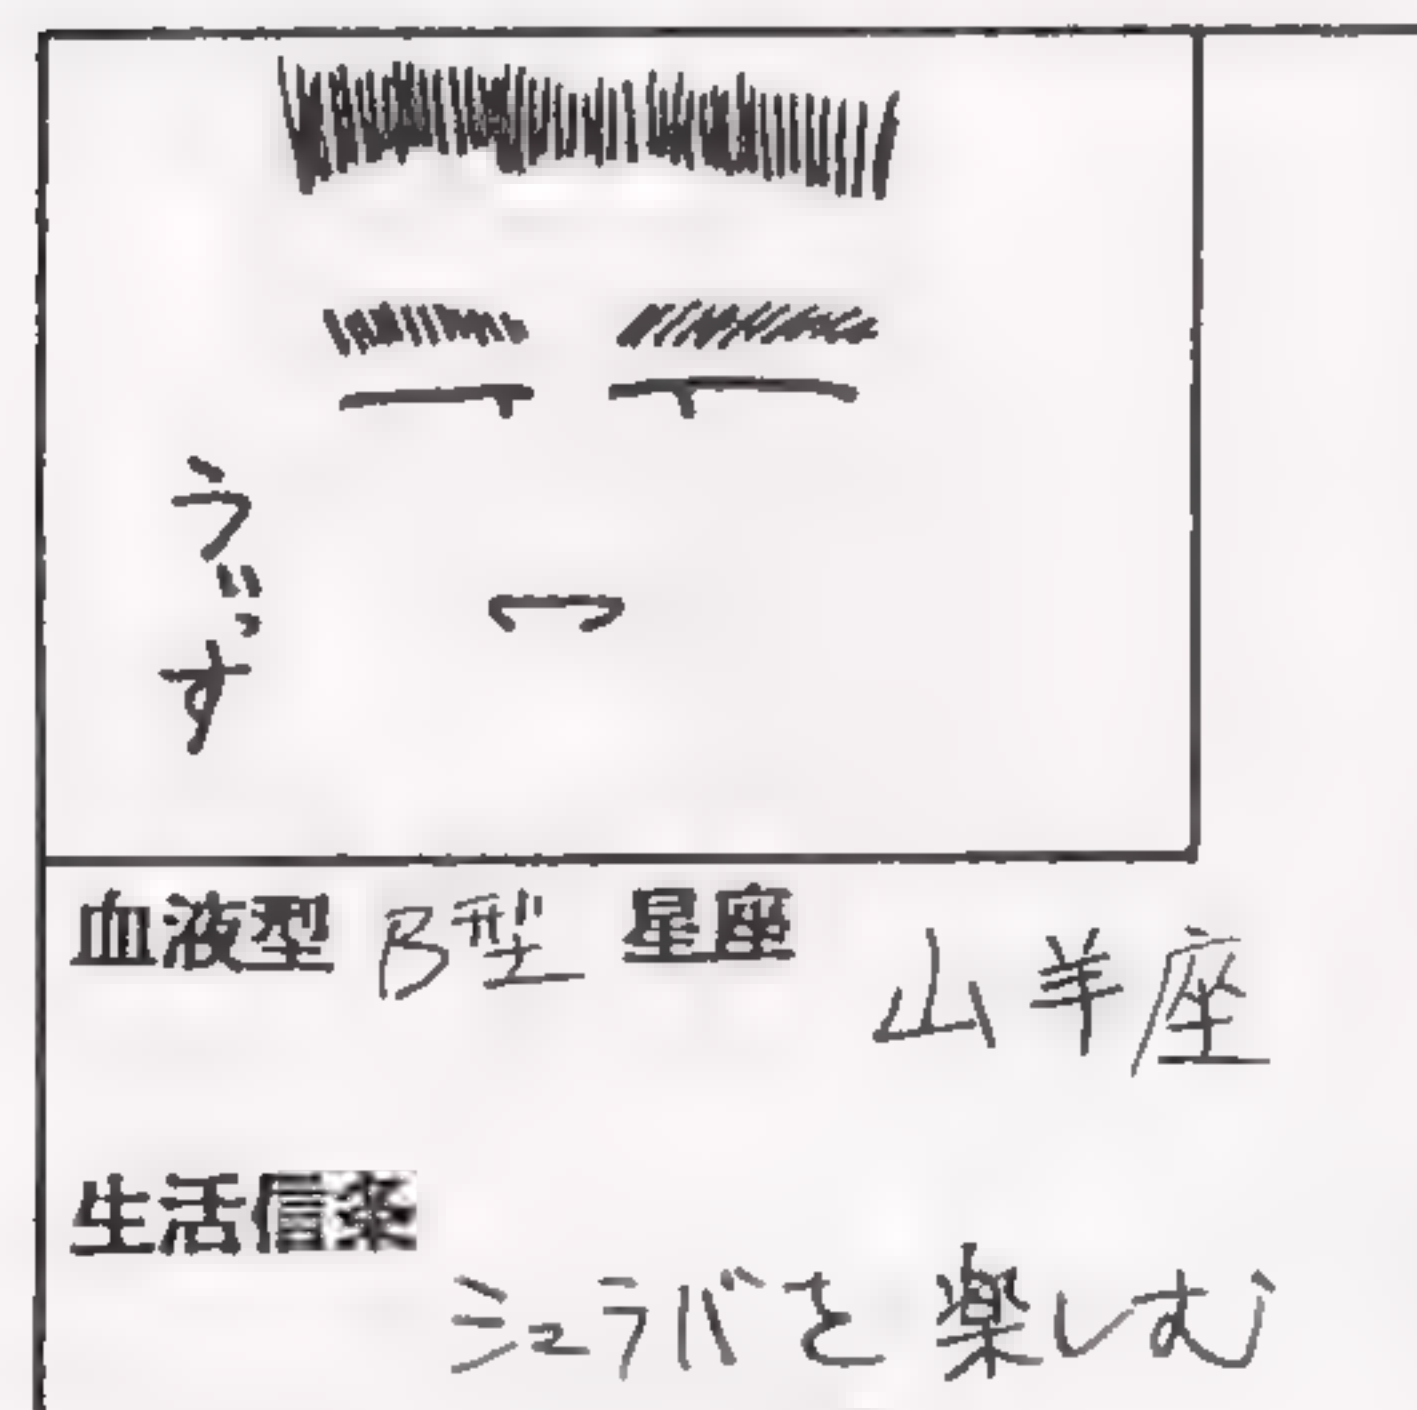 う゛っす
血液型 B型 星座 山羊座
生活信条
シュラバを楽しむ